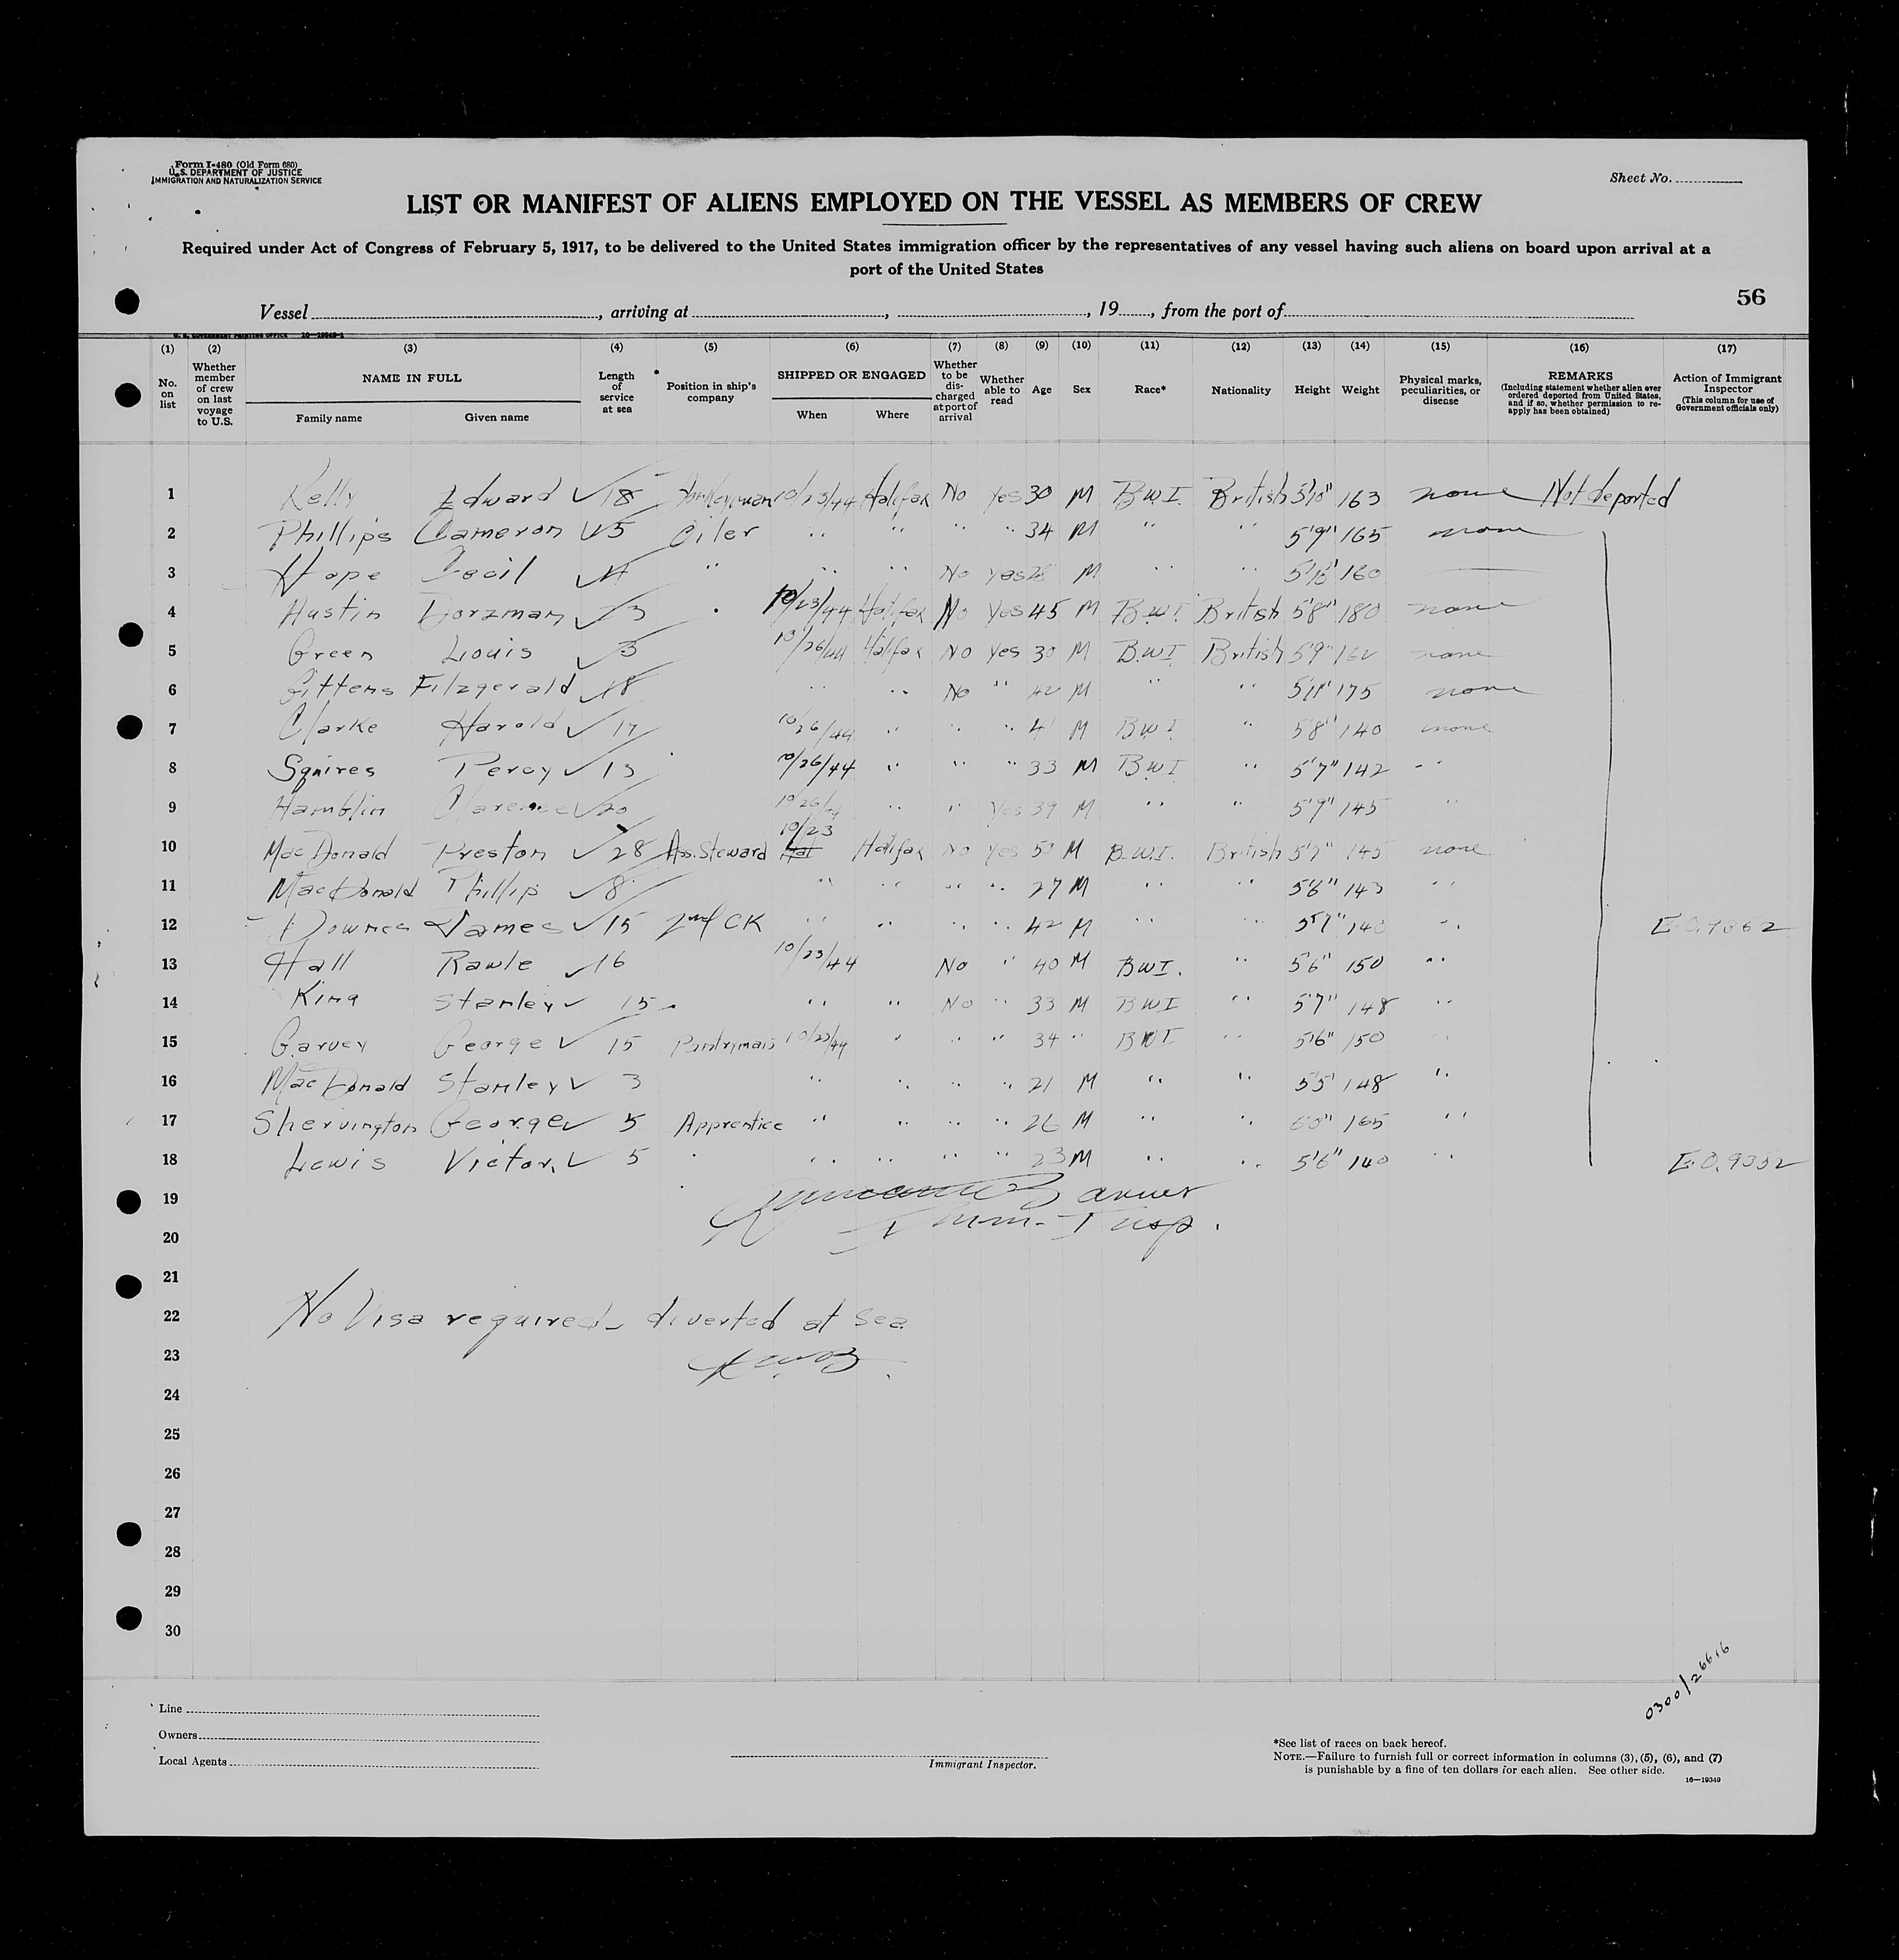 Form I-480 (Old Form 680)
U.S. DEPARTMENT OF JUSTICE
IMMIGRATION AND NATURALIZATION SERVICE
Sheet No.
LIST OR MANIFEST OF ALIENS EMPLOYED ON THE VESSEL AS MEMBERS OF CREW
Required under Act of Congress of February 5, 1917, to be delivered to the United States immigration officer by the representatives of any vessel having such aliens on board upon arrival at a
port of the United States
56
Vessel , arriving at , , 19 , from the port of
U. S. GOVERNMENT PRINTING OFFICE 16—19349-1
(1) (2) (3) (4) (5) (6) (7) (8) (9) (10) (11) (12) (13) (14) (15) (16) (17)
No. on list
Whether member of crew on last voyage to U.S.
NAME IN FULL
Family name Given name
Length of service at sea
Position in ship's company
SHIPPED OR ENGAGED
When Where
Whether to be discharged at port of arrival
Whether able to read
Age
Sex
Race*
Nationality
Height
Weight
Physical marks, peculiarities, or disease
REMARKS
(Including statement whether alien ever ordered deported from United States, and if so, whether permission to reapply has been obtained)
Action of Immigrant Inspector
(This column for use of Government officials only)
1 Kelly Edward ✓ 18 10/23/44 Halifax No Yes 30 M B.W.I. British 5'10" 163 none Not deported
2 Phillips Cameron ✓ 5 Oiler " " " " 34 M " " 5'9" 165 none
3 Hope Cecil ✓ " " " No Yes 28 M " " 5'10" 160
4 Hustin Dorzman ✓ 3 10/23/44 Halifax No Yes 45 M B.W.I. British 5'8" 180 none
5 Green Louis ✓ 3 10/26/44 Halifax No Yes 30 M B.W.I. British 5'9" 162 none
6 Gittens Fitzgerald ✓ 18 " " No " 42 M " " 5'11" 175 none
7 Clarke Harold ✓ 17 10/26/44 " " " 41 M B.W.I. " 5'8" 140 none
8 Squires Percy ✓ 13 10/26/44 " " " 33 M B.W.I. " 5'7" 142 "
9 Hamblin Clarence ✓ 20 10/26/44 " " Yes 39 M " " 5'9" 145 "
10 MacDonald Preston ✓ 28 Ass. Steward 10/23 Hal Halifax No Yes 50 M B.W.I. British 5'7" 145 none
11 MacDonald Phillip ✓ 8 " " " " 27 M " " 5'6" 143 "
12 Downes James ✓ 15 2nd CK " " " " 42 M " " 5'7" 140 " E.O. 9352
13 Hall Rawle ✓ 16 10/23/44 No " 40 M BWI. " 5'6" 150 "
14 King Stanley ✓ 15 " " No " 33 M BWI " 5'7" 148 "
15 Garvey George ✓ 15 Pantryman 10/23/44 " " " 34 " BWI " 5'6" 150
16 MacDonald Stanley ✓ 3 " " " " 21 M " " 5'5" 148 "
17 Shervington George ✓ 5 Apprentice " " " " 26 M " " 6'0" 165 "
18 Lewis Victor ✓ 5 " " " " " 23 M " " 5'6" 140 " E.O. 9352
19
Imm. Insp.
20
21
22 No Visa required - diverted at sea
23
24
25
26
27
28
29
30
0300/26616
Line
Owners
Local Agents
Immigrant Inspector.
*See list of races on back hereof.
NOTE.—Failure to furnish full or correct information in columns (3), (5), (6), and (7)
is punishable by a fine of ten dollars for each alien. See other side.
16—19349